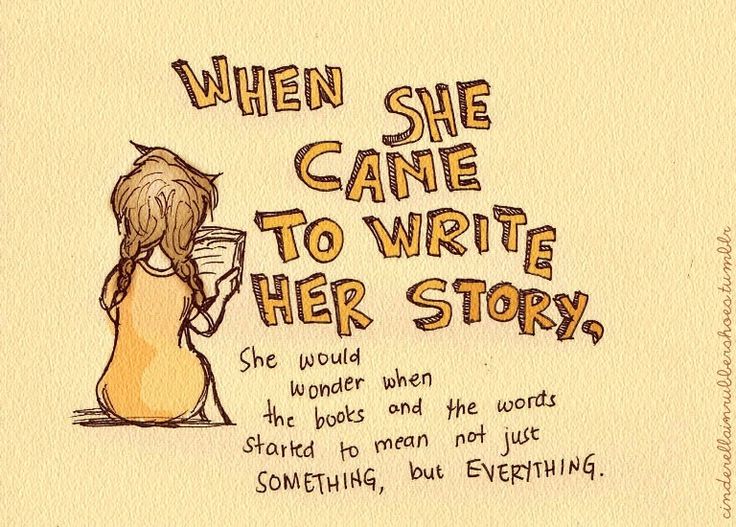 WHEN SHE
CAME
TO WRITE
HER STORY,
She would
wonder when
the books and the words
started to mean not just
SOMETHING, but EVERYTHING.
cinderellainrubbershoes.tumblr